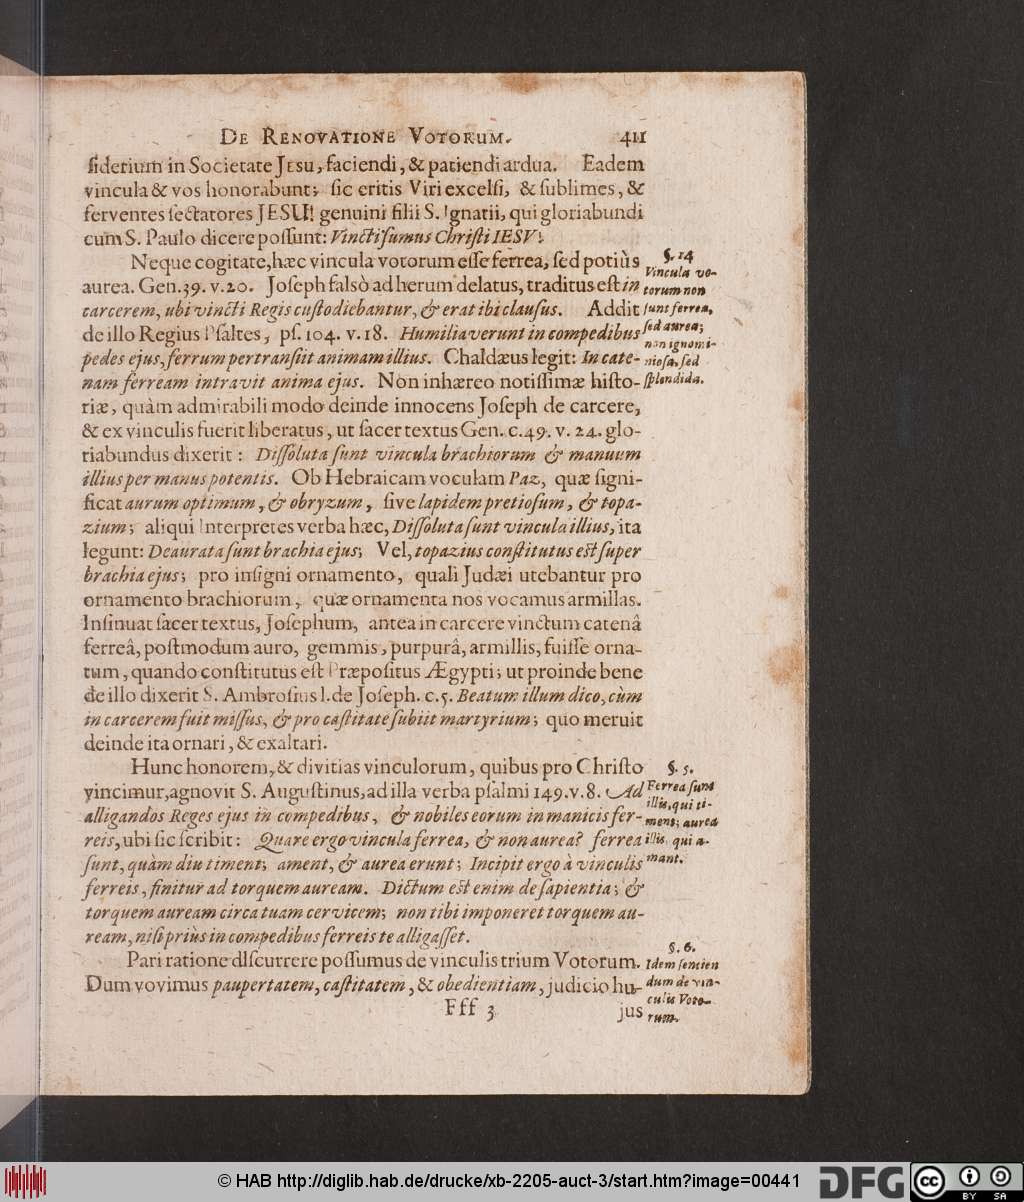 DE RENOVATIONE VOTORUM. 411
ſiderium in Societate JESU, faciendi, & patiendi ardua. Eadem
vincula & vos honorabunt; ſic eritis Viri excelſi, & ſublimes, &
ferventes ſectatores JESU! genuini filii S. Ignatii, qui gloriabundi
cum S. Paulo dicere poſſunt: Vincti ſumus Chriſti IESV.
Neque cogitate, hæc vincula votorum eſſe ferrea, ſed potiùs
aurea. Gen. 39. v. 20. Joſeph falsò ad herum delatus, traditus eſt in
carcerem, ubi vincti Regis cuſtodiebantur, & erat ibi clauſus. Addit
de illo Regius Pſaltes, pſ. 104. v. 18. Humiliaverunt in compedibus
pedes ejus, ferrum pertranſiit animam illius. Chaldæus legit: In cate-
nam ferream intravit anima ejus. Non inhæreo notiſſimæ hiſto-
riæ, quàm admirabili modo deinde innocens Joſeph de carcere,
& ex vinculis fuerit liberatus, ut ſacer textus Gen. c. 49. v. 24. glo-
riabundus dixerit: Diſſoluta ſunt vincula brachiorum & manuum
illius per manus potentis. Ob Hebraicam voculam Paz, quæ ſigni-
ficat aurum optimum, & obryzum, ſive lapidem pretioſum, & topa-
zium; aliqui Interpretes verba hæc, Diſſoluta ſunt vincula illius, ita
legunt: Deaurata ſunt brachia ejus; Vel, topazius conſtitutus eſt ſuper
brachia ejus; pro inſigni ornamento, quali Judæi utebantur pro
ornamento brachiorum, quæ ornamenta nos vocamus armillas.
Inſinuat ſacer textus, Joſephum, antea in carcere vinctum catenâ
ferreâ, poſtmodum auro, gemmis, purpurâ, armillis, fuiſſe orna-
tum, quando conſtitutus eſt Præpoſitus Ægypti; ut proinde bene
de illo dixerit S. Ambroſius l. de Joſeph. c. 5. Beatum illum dico, cùm
in carcerem fuit miſſus, & pro caſtitate ſubiit martyrium; quo meruit
deinde ita ornari, & exaltari.
Hunc honorem, & divitias vinculorum, quibus pro Chriſto
vincimur, agnovit S. Auguſtinus, ad illa verba pſalmi 149. v. 8. Ad
alligandos Reges ejus in compedibus, & nobiles eorum in manicis fer-
reis, ubi ſic ſcribit: Quare ergo vincula ferrea, & non aurea? ferrea
ſunt, quàm diu timent; ament, & aurea erunt; Incipit ergo à vinculis
ferreis, finitur ad torquem auream. Dictum eſt enim de ſapientia; &
torquem auream circa tuam cervicem; non tibi imponeret torquem au-
ream, niſi priùs in compedibus ferreis te alligaſſet.
Pari ratione dIſcurrere poſſumus de vinculis trium Votorum.
Dum vovimus paupertatem, caſtitatem, & obedientiam, judicio hu-
Fff 3 jus
§. 14
Vincula vo-
torum non
ſunt ferrea,
ſed aurea;
non ignomi-
nioſa, ſed
ſplendida.
§. 5.
Ferrea ſunt
illis, qui ti-
ment; aurea
illis, qui a-
mant.
§. 6.
Idem ſentien
dum de vin-
culis Voto-
rum.
© HAB http://diglib.hab.de/drucke/xb-2205-auct-3/start.htm?image=00441
DFG
cc
BY SA